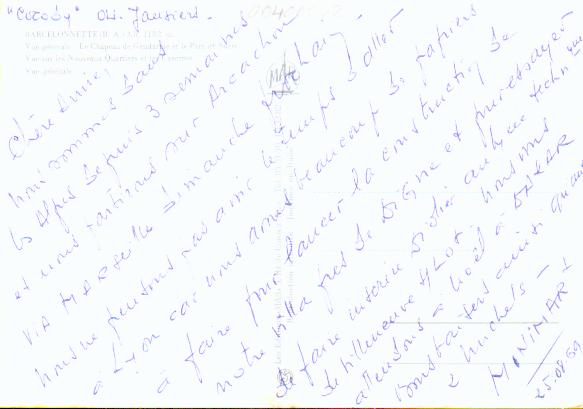 "Cocody" Ch. Jausiers.
BARCELONNETTE (B. A.) Alt. 1132 m.
Vue générale. Le Chapeau de Gendarme et le Parc et
Vue sur les Nouveaux Quartiers et
Vue générale
Chère Annie,
nous sommes dans
les Alpes depuis 3 semaines
et nous partirons sur Arcachon
VIA MARSEILLE dimanche prochain.
nous ne pensons pas avoir le temps d'aller
à Lyon car nous avons beaucoup de papiers
à faire pour lancer la construction de
notre villa près de DIGNE et pour essayer
de faire inscrire Didier au lycée technique
de Villeneuve s/LOT. nous vous
attendons à Noël à DAKAR
Bons baisers ainsi qu'aux
2 Michels -
MINIMAR 1
25.08.69